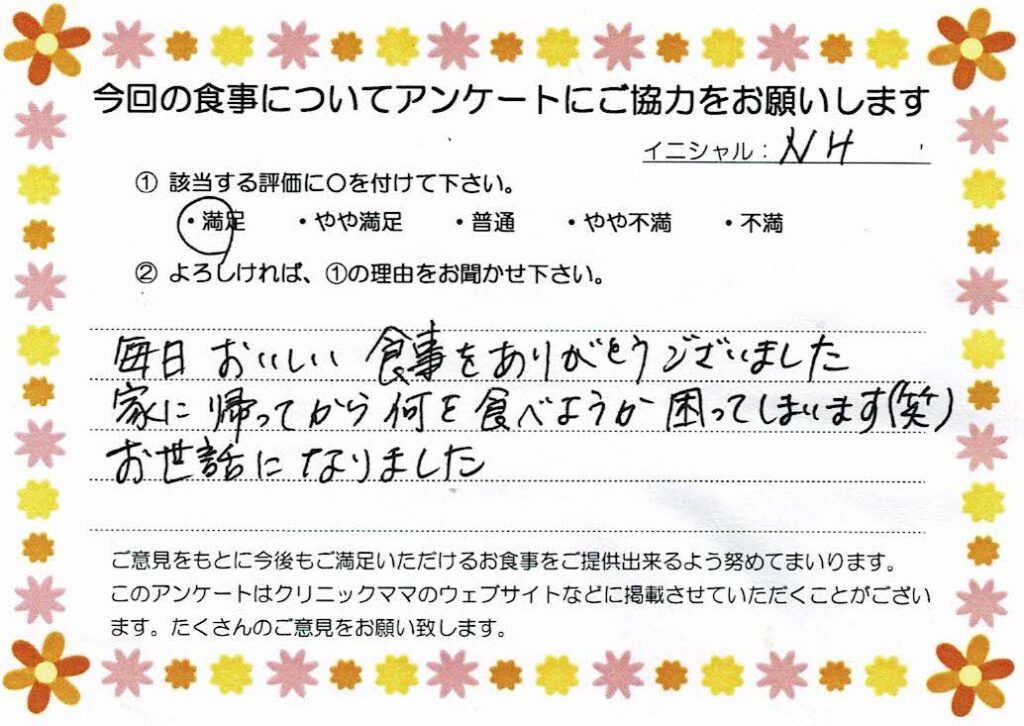 今回の食事についてアンケートにご協力をお願いします
イニシャル：NH
① 該当する評価に〇を付けて下さい。
・満足 ・やや満足 ・普通 ・やや不満 ・不満
② よろしければ、①の理由をお聞かせ下さい。
毎日 おいしい 食事をありがとうございました
家に帰ってから何を食べようか困ってしまいます(笑)
お世話になりました
ご意見をもとに今後もご満足いただけるお食事をご提供出来るよう努めてまいります。
このアンケートはクリニックママのウェブサイトなどに掲載させていただくことがござい
ます。たくさんのご意見をお願い致します。